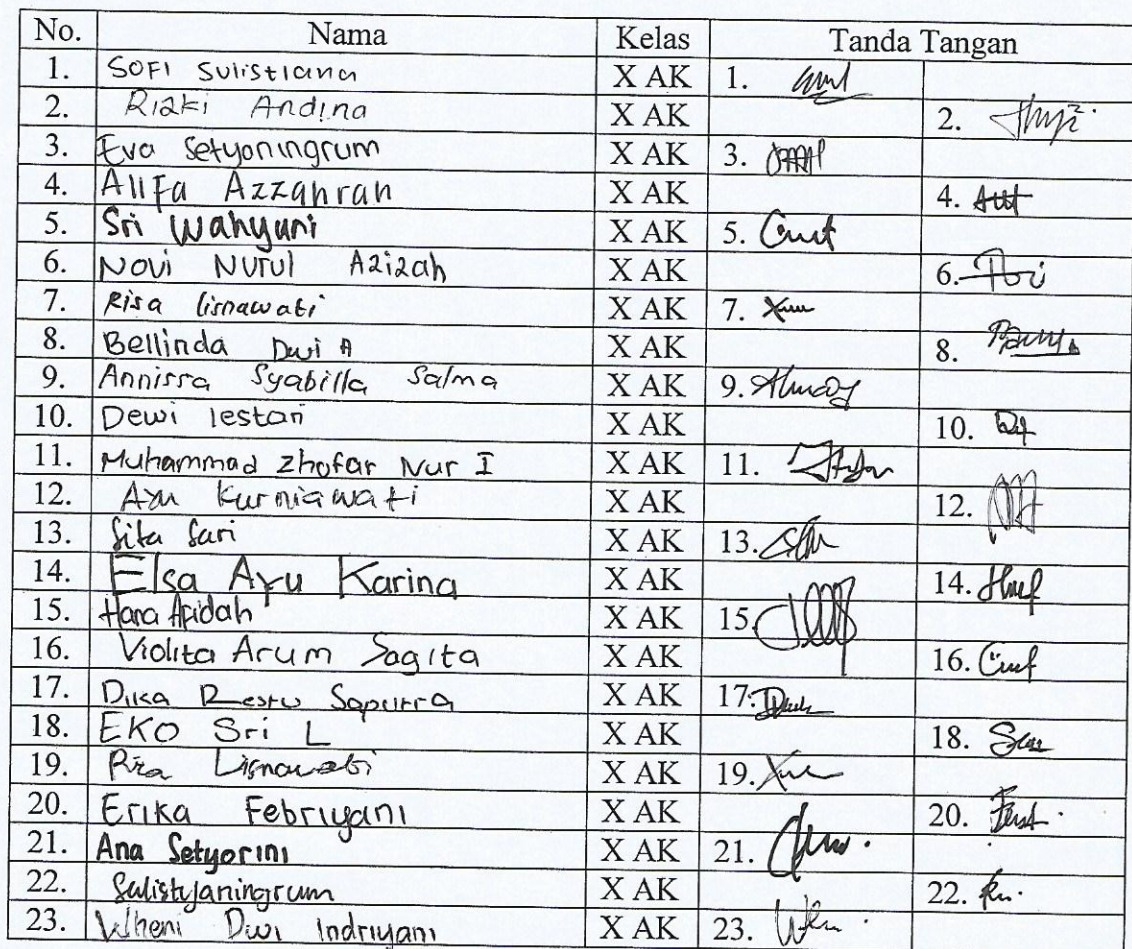 No. Nama Kelas Tanda Tangan
1. SOFI Sulistiana X AK 1.
2. Rizki Andina X AK 2.
3. Eva Setyoningrum X AK 3.
4. Alifa Azzahrah X AK 4.
5. Sri Wahyuni X AK 5.
6. Novi Nurul Azizah X AK 6.
7. Risa lisnawati X AK 7.
8. Bellinda Dwi A X AK 8.
9. Annissa Syabilla Salma X AK 9.
10. Dewi lestari X AK 10.
11. Muhammad Zhofar Nur I X AK 11.
12. Ayu Kurniawati X AK 12.
13. Sita Sari X AK 13.
14. Elsa Ayu Karina X AK 14.
15. Hana Afidah X AK 15.
16. Violita Arum Sagita X AK 16.
17. Dika Restu Saputra X AK 17.
18. EKO Sri L X AK 18.
19. Lisnawati X AK 19.
20. Erika Febriyani X AK 20.
21. Ana Setyorini X AK 21.
22. Sulistyaningrum X AK 22.
23. Wheni Dwi Indriyani X AK 23.